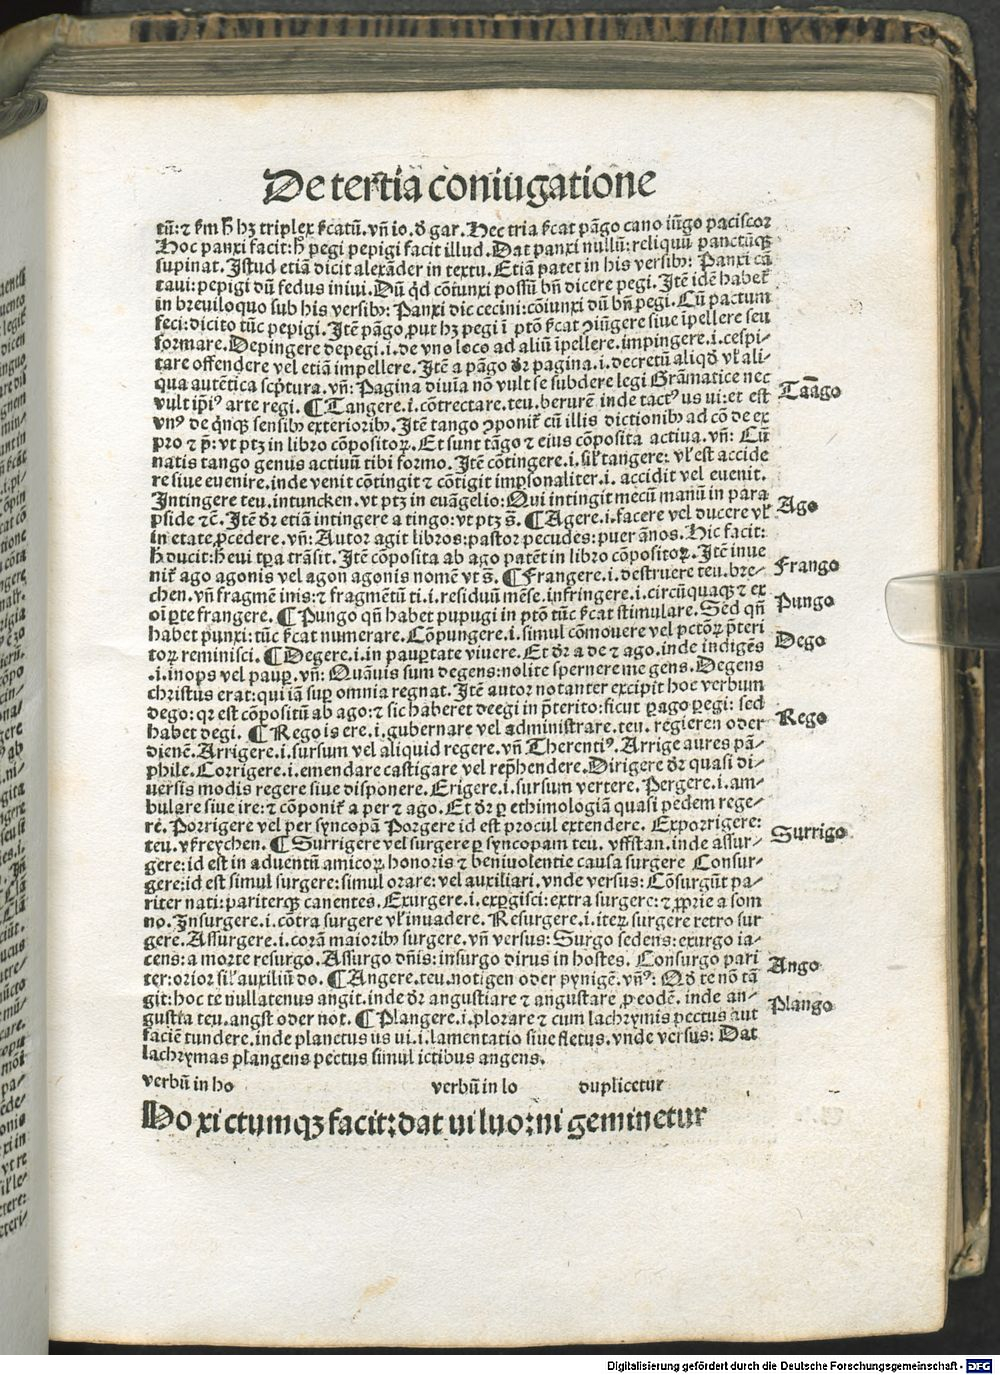 De tertia coniugatione
tū: ⁊ ẜm ħ hꝫ triplex ẜcatū. vñ io. đ gar. Hec tria ẜcat pāgo cano iūgo paciscor
Hoc panxi facit: ħ pegi pepigi facit illud. Dat panxi nullū: reliquū panctūqꝫ
supinat. Istud etiā dicit alexāder in textu. Etiā patet in his versibꝰ: Panxi cā
taui: pepigi dū fedus iniui. Dū qđ cōiunxi possū bñ dicere pegi. Itē idē habet̄
in breuiloquo sub his versibꝰ: Panxi dic cecini: cōiunxi dū bñ pegi. Cū pactum
feci: dicito tūc pepigi. Itē pāgo ꝓut hꝫ pegi ī ptō ẜcat ꝯiūgere siue īpellere seu
formare. Depingere depegi .i. de vno loco ad aliū īpellere. impingere .i. cespi-
tare offendere vel etiā impellere. Itē a pāgo đr pagina .i. decretū aliqđ vł ali-
qua autētica scp̄tura. vñ: Pagina diuīa nō vult se subdere legi Grāmatice nec
vult ip̄iꝰ arte regi. ¶ Tangere .i. cōtrectare. teu. berurē inde tactꝰ us ui: et est
vnꝰ de q̇nqꝫ sensibꝰ exterioribꝰ. Itē tango ꝯponit̄ cū illis dictionibꝰ ad cō de ex
pro ⁊ p̄: vt ptꝫ in libro cōpositoꝝ. Et sunt tāgo ⁊ eius cōposita actiua. vñ: Cū
natis tango genus actiuū tibi formo. Itē cōtingere .i. sił tangere: vł est accide
re siue euenire. inde venit cōtingit ⁊ cōtigit impsonaliter .i. accidit vel euenit.
Intingere teu. intuncken. vt ptꝫ in euāgelio: Qui intingit mecū manū in para
pside ⁊c̄. Itē đr etiā intingere a tingo: vt ptꝫ s̄. ¶ Agere .i. facere vel ducere vł
in etate ꝓcedere. vñ: Autor agit libros: pastor pecudes: puer ānos. Hic facit:
ħ ducit: ħ eui tꝑa trāsit. Itē cōposita ab ago patēt in libro cōpositoꝝ. Itē inue
nit̄ ago agonis vel agon agonis nomē vt s̄. ¶ Frangere .i. destruere teu. bre-
chen. vñ fragmē inis: ⁊ fragmētū ti .i. residuū mēse. infringere .i. circūquaqꝫ ⁊ ex
oī ꝑte frangere. ¶ Pungo qñ habet pupugi in ptō tūc ẜcat stimulare. Sed qñ
habet punxi: tūc ẜcat numerare. Cōpungere .i. simul cōmouere vel pctōꝝ p̄teri
toꝝ reminisci. ¶ Degere .i. in pauꝑtate viuere. Et đr a de ⁊ ago. inde indigēs
.i. inops vel pauꝑ. vñ: Quāuis sum degens: nolite spernere me gens. Degens
christus erat: qui iā suꝑ omnia regnat. Itē autor notanter excipit hoc verbum
dego: qꝛ est cōpositū ab ago: ⁊ sic haberet deegi in p̄terito: sicut ꝑago ꝑegi: sed
habet degi. ¶ Rego is ere .i. gubernare vel administrare. teu. regieren oder
dienē. Arrigere .i. sursum vel aliquid regere. vñ Therentiꝰ. Arrige aures pā-
phile. Corrigere .i. emendare castigare vel rep̄hendere. Dirigere đr quasi di-
uersis modis regere siue disponere. Erigere .i. sursum vertere. Pergere .i. am-
bulare siue ire: ⁊ cōponit̄ a per ⁊ ago. Et đr ꝑ ethimologiā quasi pedem rege-
re. Porrigere vel per syncopā Porgere id est procul extendere. Exporrigere:
teu. vßreychen. ¶ Surrigere vel surgere ꝑ syncopam teu. vffstan. inde assur-
gere: id est in aduentū amicoꝝ honoris ⁊ beniuolentie causa surgere Consur-
gere: id est simul surgere: simul orare: vel auxiliari. vnde versus: Cōsurgūt pa-
riter nati: pariterqꝫ canentes. Exurgere .i. exꝑgisci: extra surgere: ⁊ ꝓprie a som
no. Insurgere .i. cōtra surgere vł inuadere. Resurgere .i. iteꝝ surgere retro sur
gere. Assurgere .i. corā maioribꝰ surgere. vñ versus: Surgo sedens: exurgo ia-
cens: a morte resurgo. Assurgo dñis: insurgo dirus in hostes. Consurgo pari
ter: orior sił auxiliū do. ¶ Angere. teu. notigen oder pynigē. vñꝰ: Qđ te nō tā
git: hoc te nullatenus angit. inde đr angustiare ⁊ angustare ꝓ eodē. inde an-
gustia teu. angst oder not. ¶ Plangere .i. plorare ⁊ cum lachrymis pectus aut
faciē tundere. inde planctus us ui .i. lamentatio siue fletus. vnde versus: Dat
lachrymas plangens pectus simul ictibus angens.
Tāgo
Ago
Frango
Pungo
Dego
Rego
Surrigo
Ango
Plango
verbū in ho verbū in lo duplicetur
Ho xi ctumqꝫ facit: dat ui luo: ni geminetur
Digitalisierung gefördert durch die Deutsche Forschungsgemeinschaft - DFG